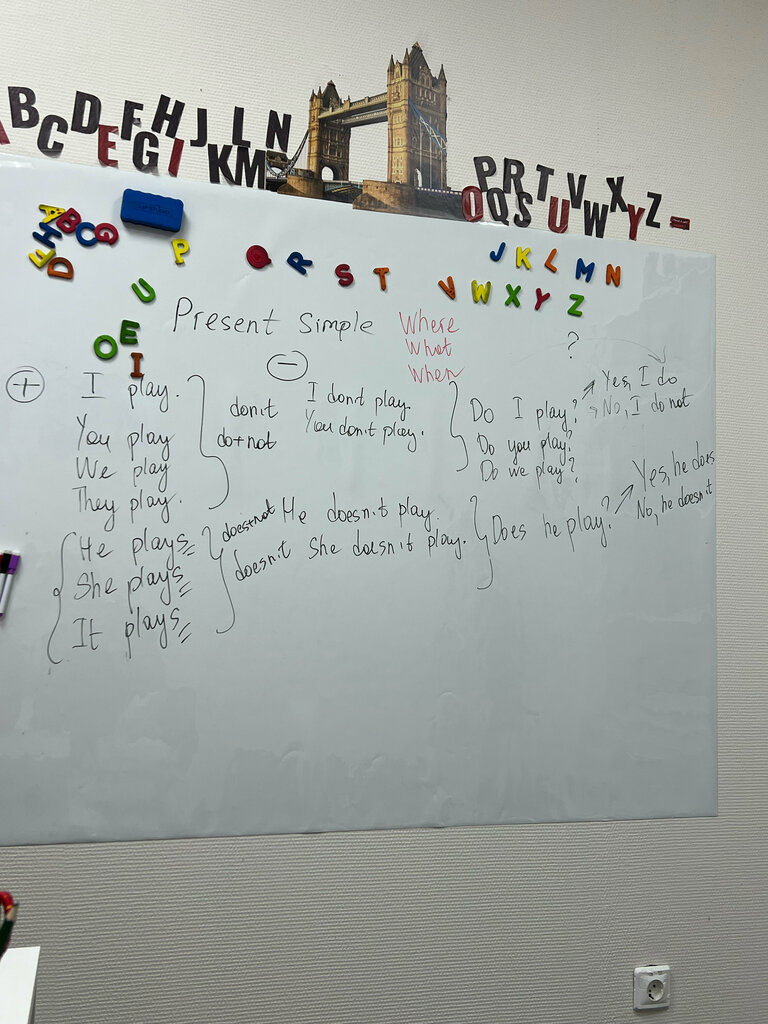 A B C D E F G H I J K L M N
O P Q R S T U V W X Y Z
A B C G
H
F D
P
Q R S T
J K L M N
V W X Y Z
U
O E I
Present Simple
Where
What
When
+
I play.
You play
We play
They play.
He plays
She plays
It plays
−
don't
do+not
I don't play.
You don't play.
does+not
doesn't
He doesn't play.
She doesn't play.
?
Do I play?
Yes, I do
No, I do not
Do you play?
Do we play?
Does he play?
Yes, he does
No, he doesn't